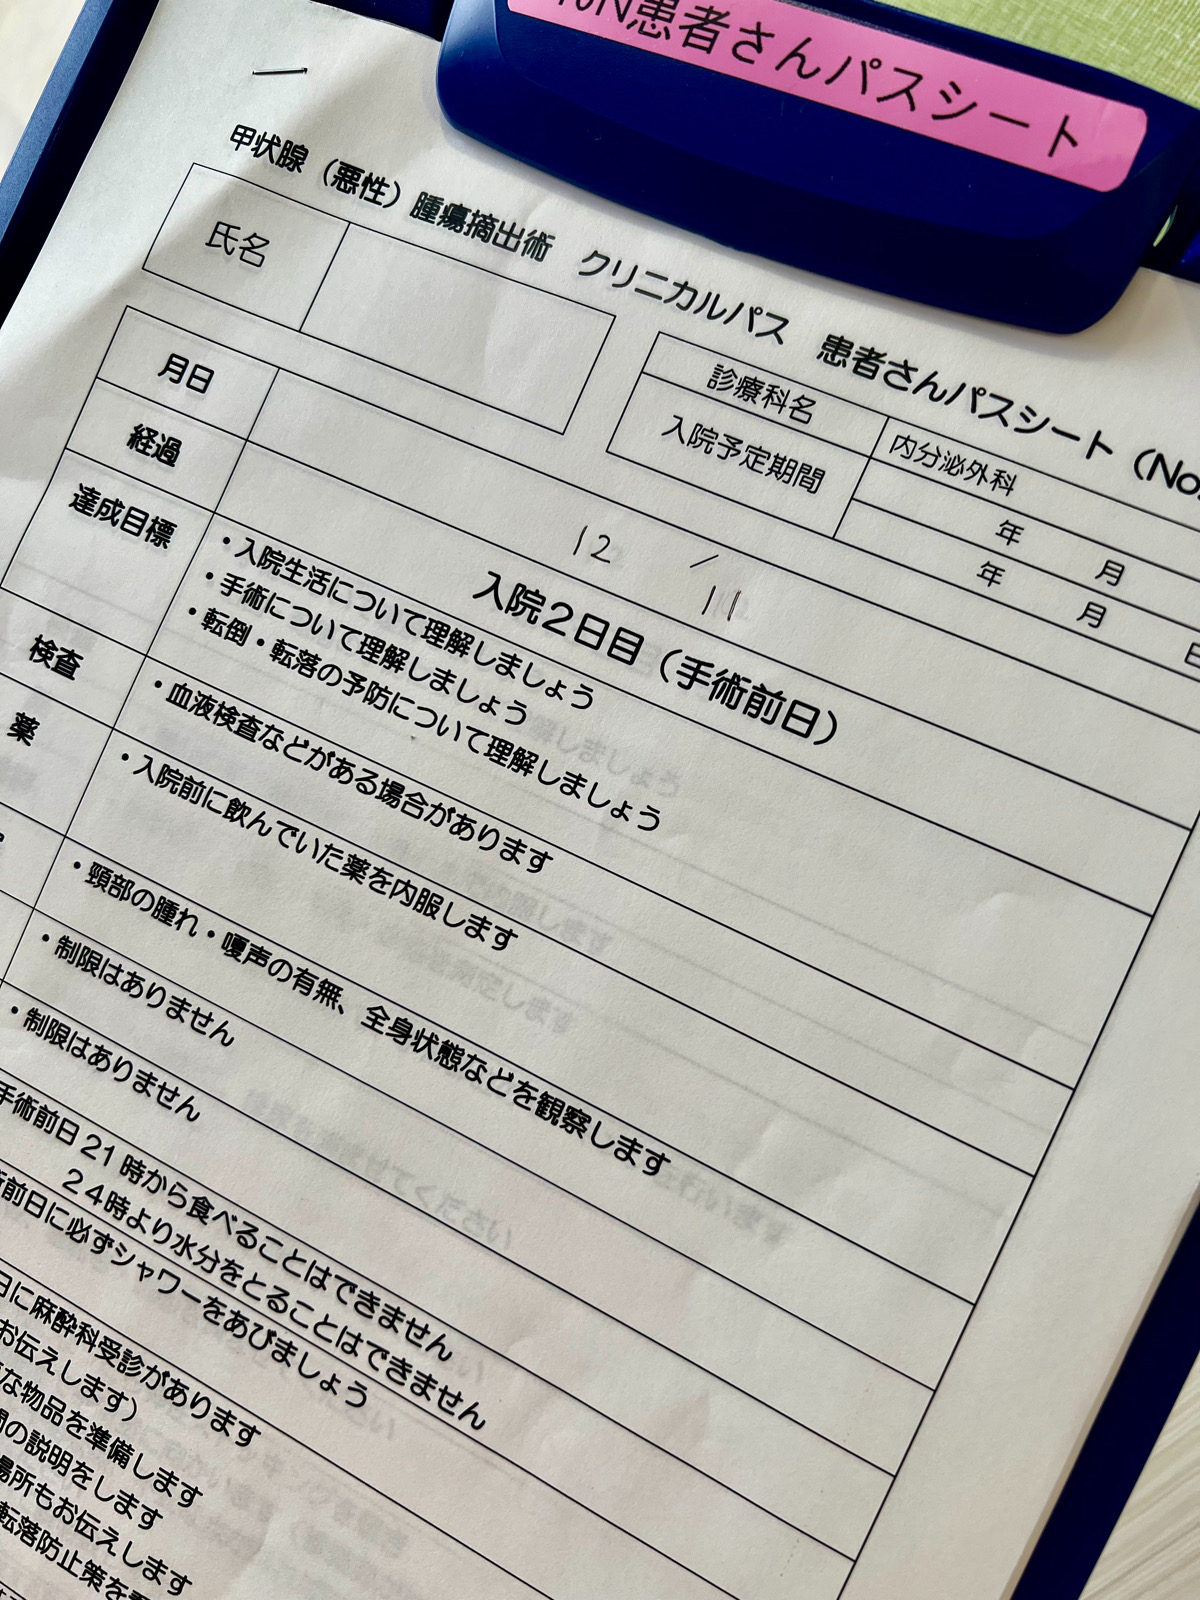 患者さんパスシート
甲状腺（悪性）腫瘍摘出術　クリニカルパス　患者さんパスシート（No
氏名
診療科名　内分泌外科
入院予定期間　年　月
年　月　日
月日　12 / 11
経過　入院２日目（手術前日）
達成目標
・入院生活について理解しましょう
・手術について理解しましょう
・転倒・転落の予防について理解しましょう
検査　・血液検査などがある場合があります
薬　・入院前に飲んでいた薬を内服します
・頸部の腫れ・嗄声の有無、全身状態などを観察します
・制限はありません
・制限はありません
手術前日２１時から食べることはできません
２４時より水分をとることはできません
前日に必ずシャワーをあびましょう
日に麻酔科受診があります
お伝えします）
な物品を準備します
の説明をします
場所もお伝えします
転落防止策を